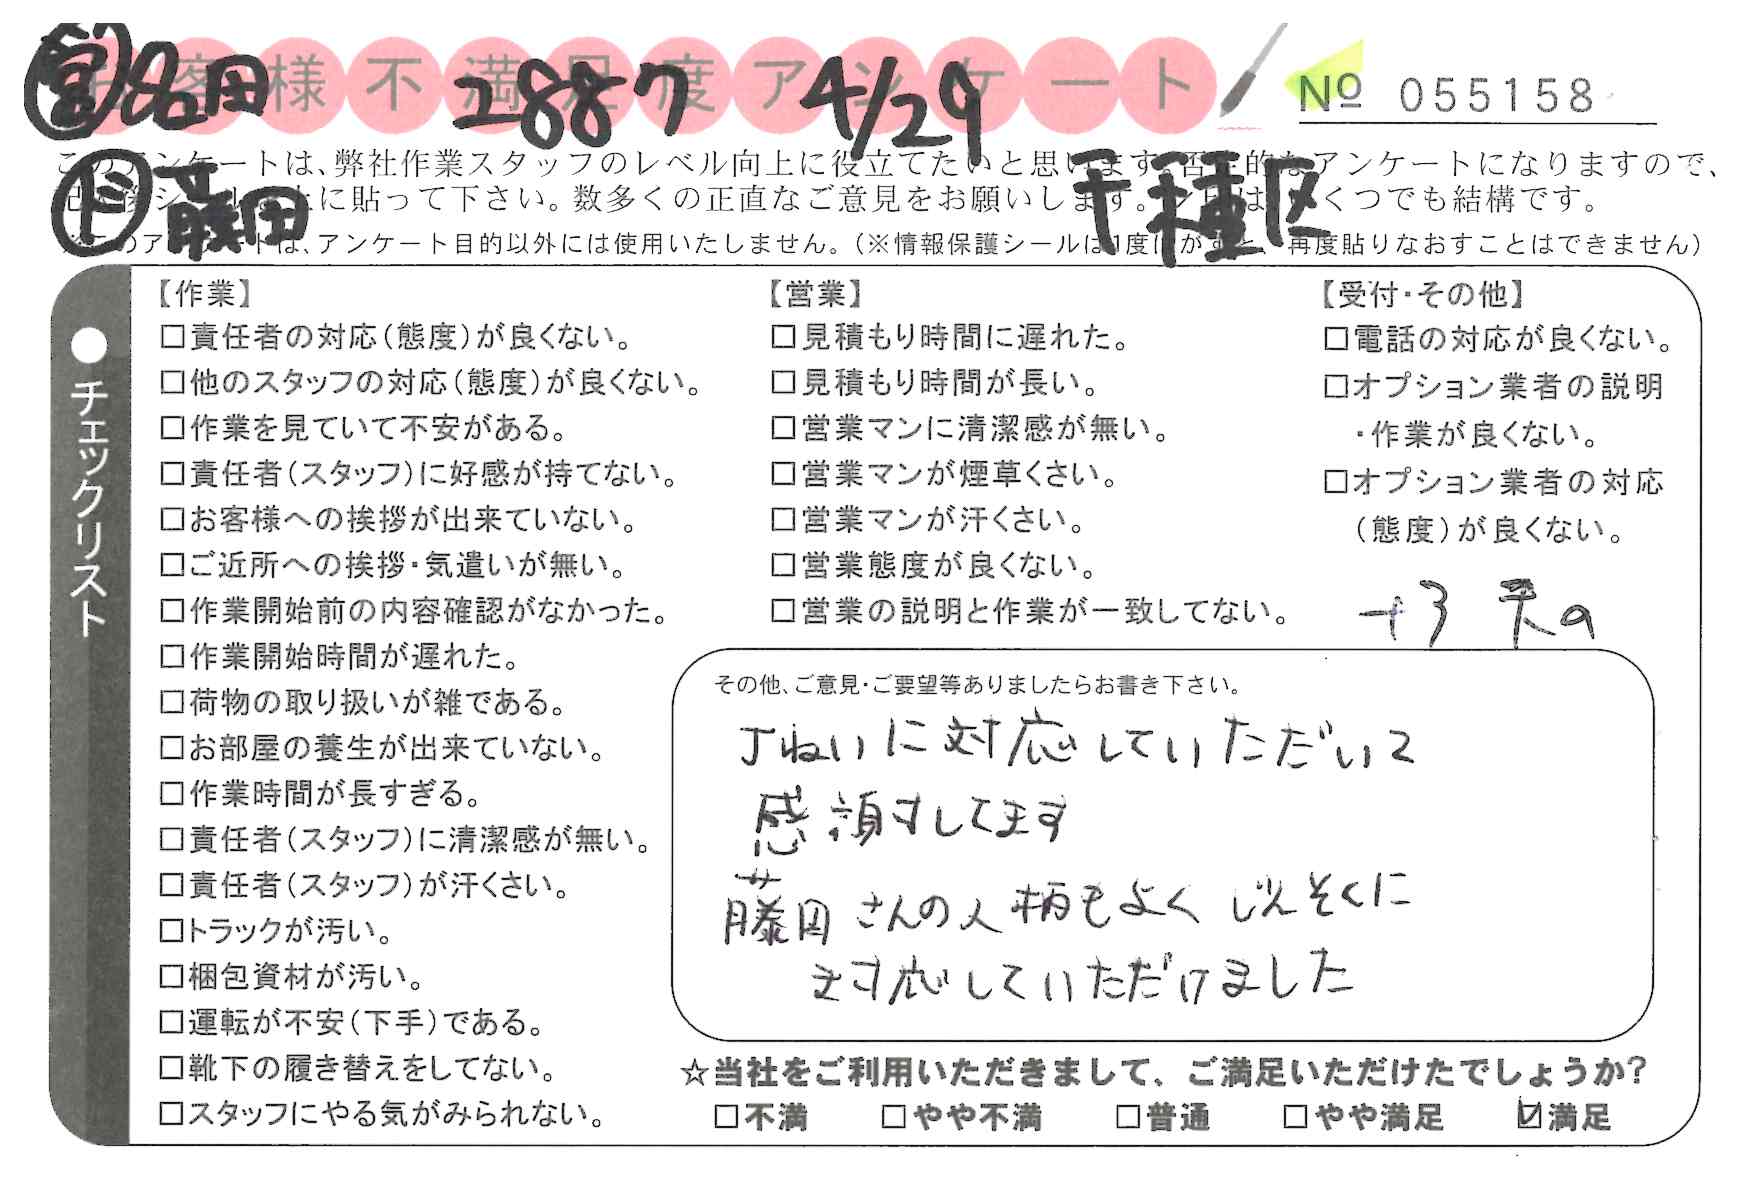 お客様不満足度アンケート
No 055158
営 名田 2887 4/29
ド 藤田 千種区
このアンケートは、弊社作業スタッフのレベル向上に役立てたいと思います。否定的なアンケートになりますので、
に貼って下さい。数多くの正直なご意見をお願いします。 くつでも結構です。
※このアンケートは、アンケート目的以外には使用いたしません。(※情報保護シールは1度はがすと、再度貼りなおすことはできません)
●チェックリスト
【作業】
□責任者の対応(態度)が良くない。
□他のスタッフの対応(態度)が良くない。
□作業を見ていて不安がある。
□責任者(スタッフ)に好感が持てない。
□お客様への挨拶が出来ていない。
□ご近所への挨拶・気遣いが無い。
□作業開始前の内容確認がなかった。
□作業開始時間が遅れた。
□荷物の取り扱いが雑である。
□お部屋の養生が出来ていない。
□作業時間が長すぎる。
□責任者(スタッフ)に清潔感が無い。
□責任者(スタッフ)が汗くさい。
□トラックが汚い。
□梱包資材が汚い。
□運転が不安(下手)である。
□靴下の履き替えをしてない。
□スタッフにやる気がみられない。
【営業】
□見積もり時間に遅れた。
□見積もり時間が長い。
□営業マンに清潔感が無い。
□営業マンが煙草くさい。
□営業マンが汗くさい。
□営業態度が良くない。
□営業の説明と作業が一致してない。
【受付・その他】
□電話の対応が良くない。
□オプション業者の説明
・作業が良くない。
□オプション業者の対応
(態度)が良くない。
その他、ご意見・ご要望等ありましたらお書き下さい。
丁ねいに対応していただいて
感謝してます
藤田さんの人柄もよく じんそくに
対応していただけました
☆当社をご利用いただきまして、ご満足いただけたでしょうか?
□不満 □やや不満 □普通 □やや満足 ☑満足